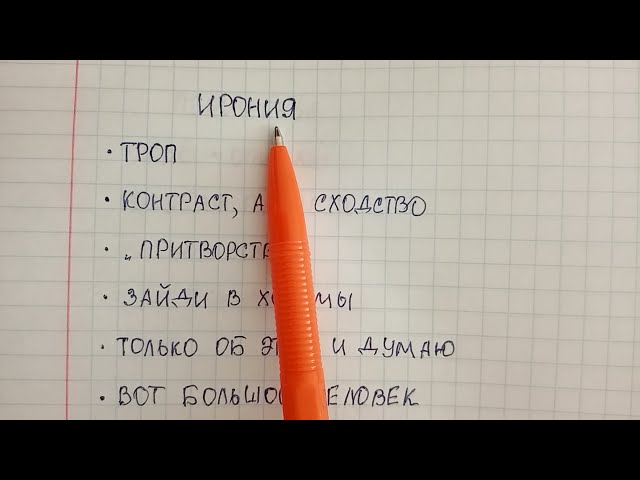 ИРОНИЯ
· ТРОП
· КОНТРАСТ, А СХОДСТВО
· „ПРИТВОРСТВ
· ЗАЙДИ В ХО МЫ
· ТОЛЬКО ОБ Э И ДУМАЮ
· ВОТ БОЛЬШО ЕЛОВЕК